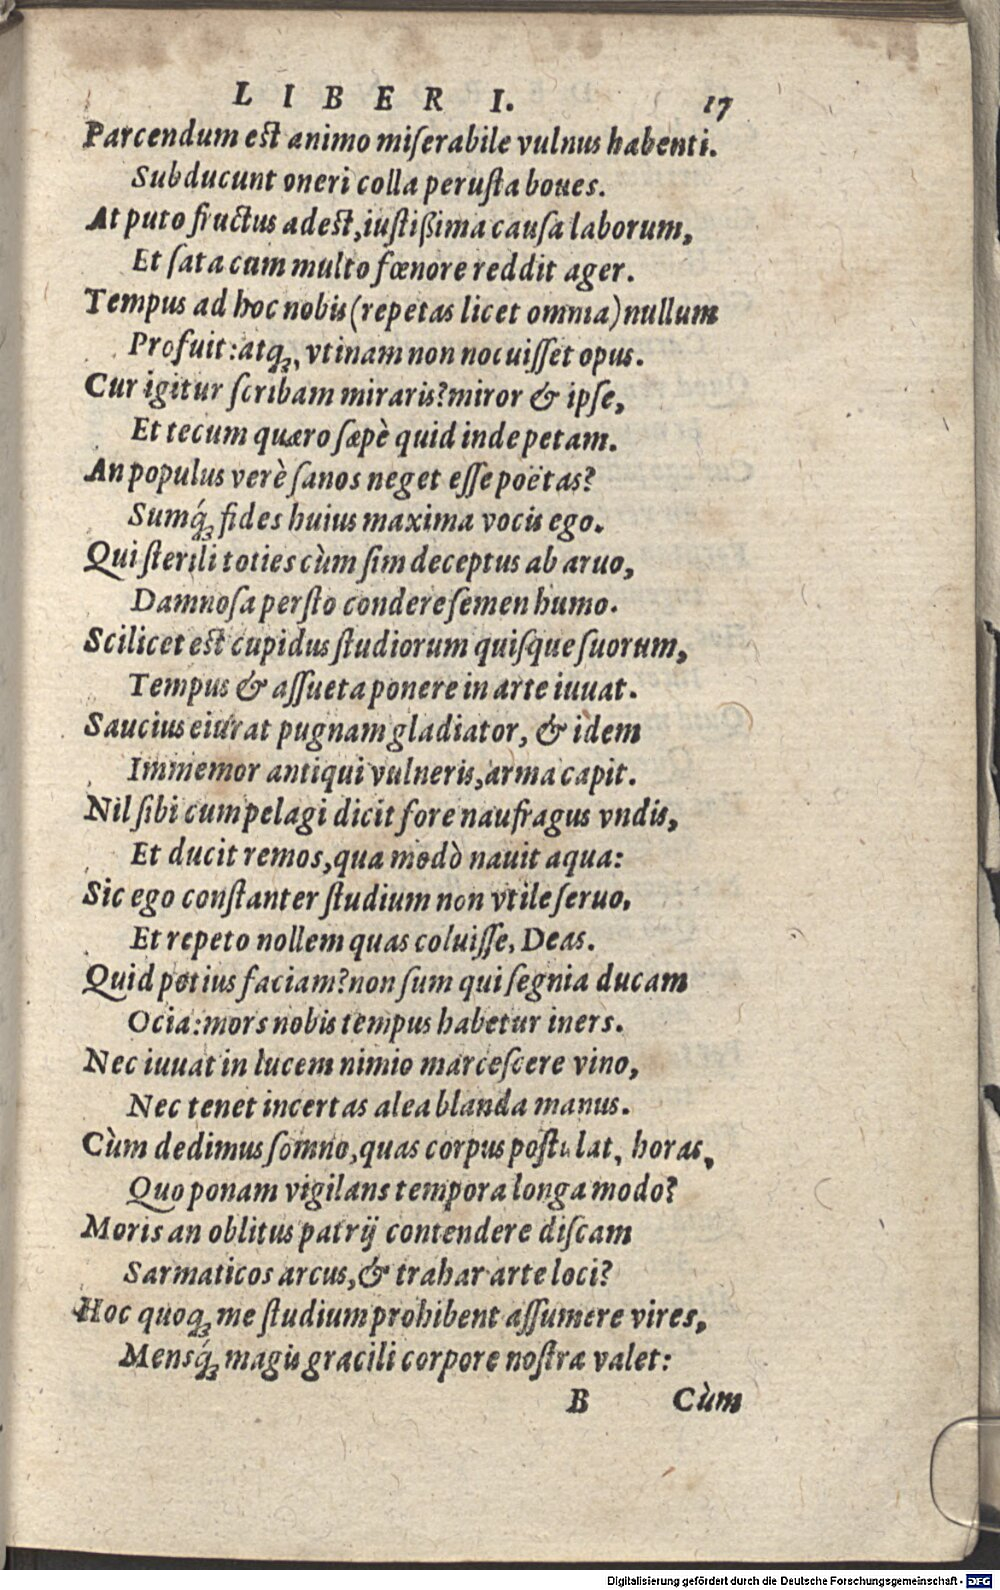 LIBER I. 17
Parcendum est animo miſerabile vulnus habenti.
Subducunt oneri colla peruſta boues.
At puto fructus adest, iuſtißima cauſa laborum,
Et ſata cum multo fœnore reddit ager.
Tempus ad hoc nobis (repetas licet omnia) nullum
Profuit: atq;, vtinam non nocuiſſet opus.
Cur igitur ſcribam miraris? miror & ipſe,
Et tecum quæro ſæpè quid inde petam.
An populus verè ſanos neget eſſe poëtas?
Sumq́; fides huius maxima vocis ego.
Qui ſterili toties cùm ſim deceptus ab aruo,
Damnoſa perſto condere ſemen humo.
Scilicet est cupidus ſtudiorum quiſque ſuorum,
Tempus & aſſueta ponere in arte iuuat.
Saucius eiurat pugnam gladiator, & idem
Immemor antiqui vulneris, arma capit.
Nil ſibi cum pelagi dicit fore naufragus vndis,
Et ducit remos, qua modò nauit aqua:
Sic ego conſtanter ſtudium non vtile ſeruo,
Et repeto nollem quas coluiſſe, Deas.
Quid potius faciam? non ſum qui ſegnia ducam
Ocia: mors nobis tempus habetur iners.
Nec iuuat in lucem nimio marceſcere vino,
Nec tenet incertas alea blanda manus.
Cùm dedimus ſomno, quas corpus poſtulat, horas,
Quo ponam vigilans tempora longa modo?
Moris an oblitus patrij contendere diſcam
Sarmaticos arcus, & trahar arte loci?
Hoc quoq; me ſtudium prohibent aſſumere vires,
Mensq́; magis gracili corpore noſtra valet:
B Cùm
Digitalisierung gefördert durch die Deutsche Forschungsgemeinschaft - DFG